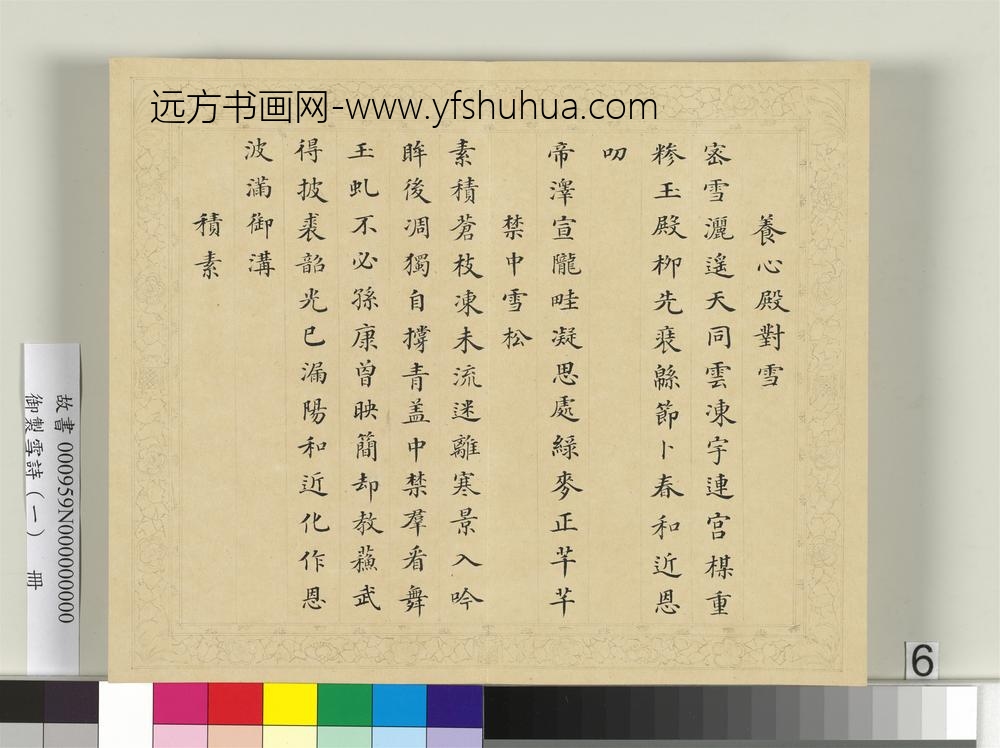 远方书画网-www.yfshuhua.com
養心殿對雪
密雪灑遙天同雲凍宇連宮楳重
糝玉殿柳先裴緜節卜春和近恩
叨
帝澤宣隴畦凝思處綠麥正芊芊
禁中雪松
素積蒼枝凍未流迷離寒景入吟
眸後凋獨自撐青盖中禁羣看舞
玉虬不必孫康曾映簡却教蘓武
得披裘韶光已漏陽和近化作恩
波滿御溝
積素
故書 000959N000000000
御製雪詩(一) 冊
6